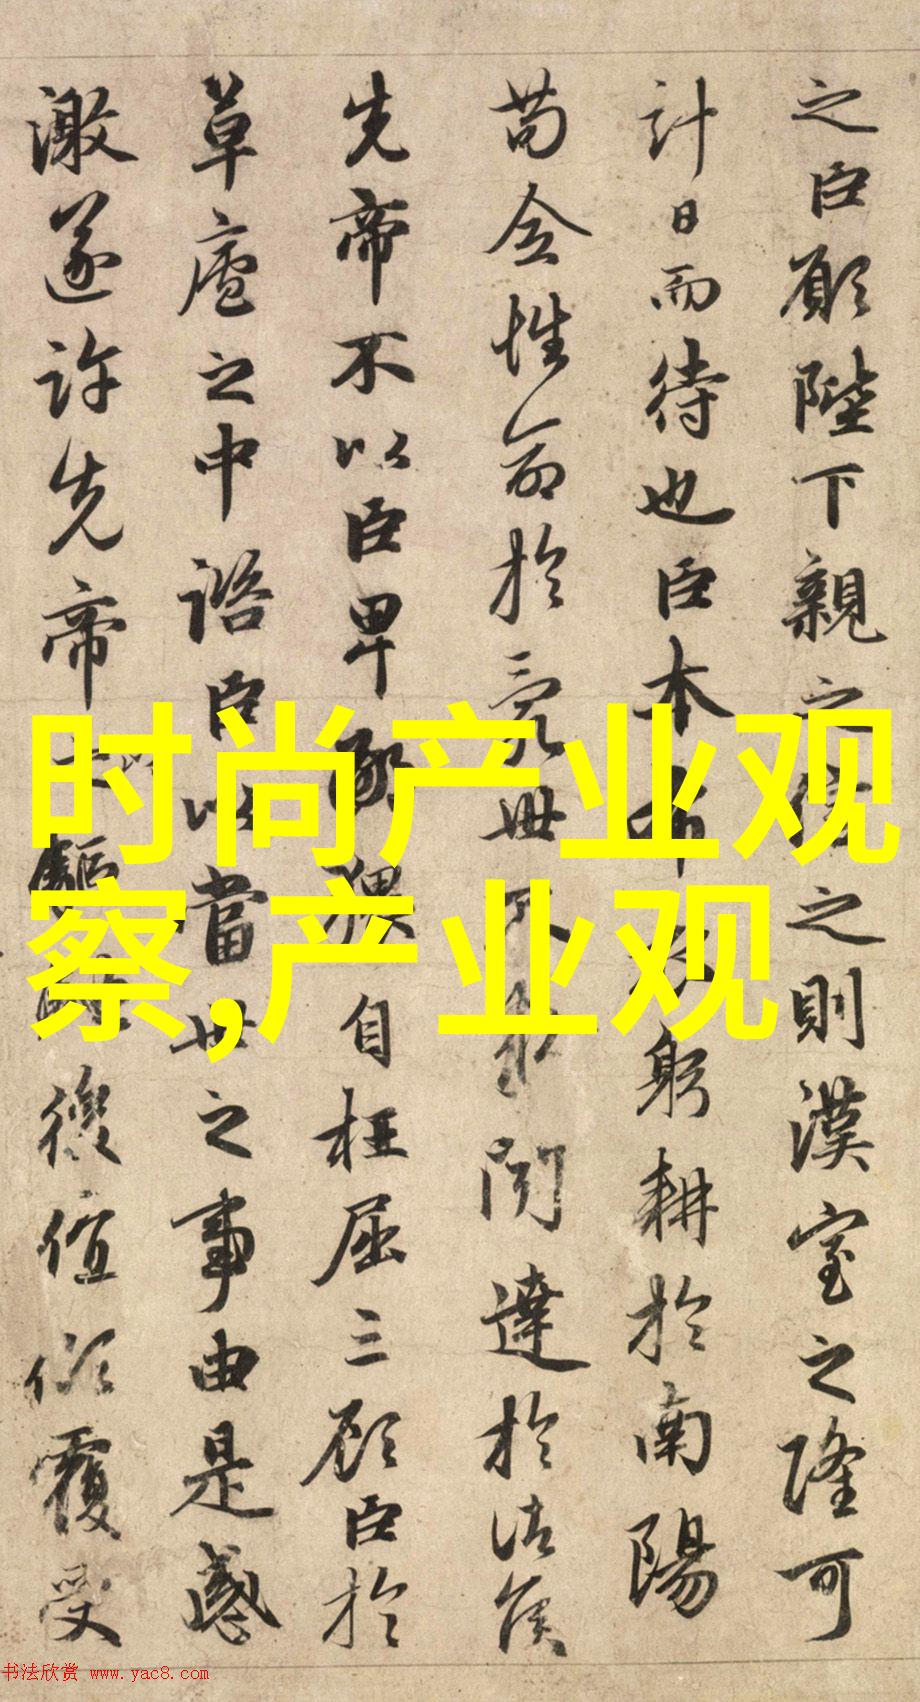 之臣願陛下親之信之則漢室之隆可
計日而待也臣本布衣躬耕於南陽
苟全性命於亂世不求聞達於諸侯
先帝不以臣卑鄙猥自枉屈三顧臣於
草廬之中諮臣以當世之事由是感
激遂許先帝以驅馳後值傾覆受
时尚产业观
察,产业观
书法欣赏 www.yac8.com